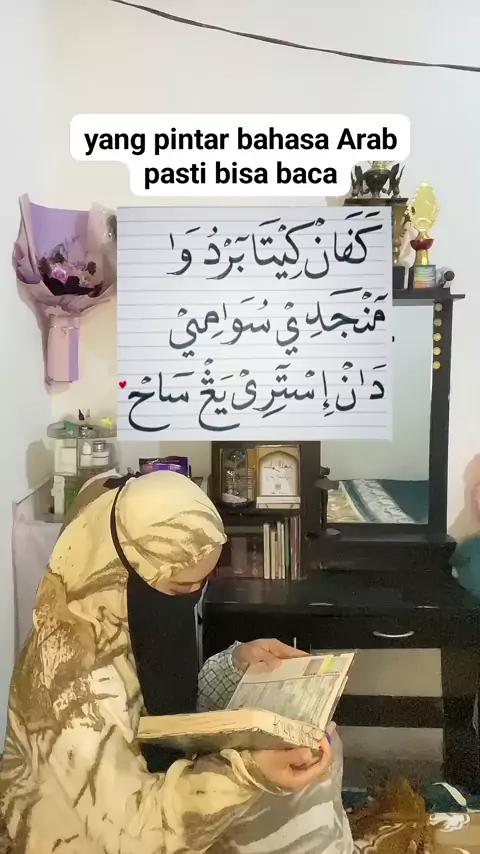 yang pintar bahasa Arab
pasti bisa baca
كَفَانْ كِيْتَا بَرْدُ وَا
مَنْجَدِيْ سُوَامِيْ
دَانْ إِسْتَرِىْ يَڠْ سَاحْ